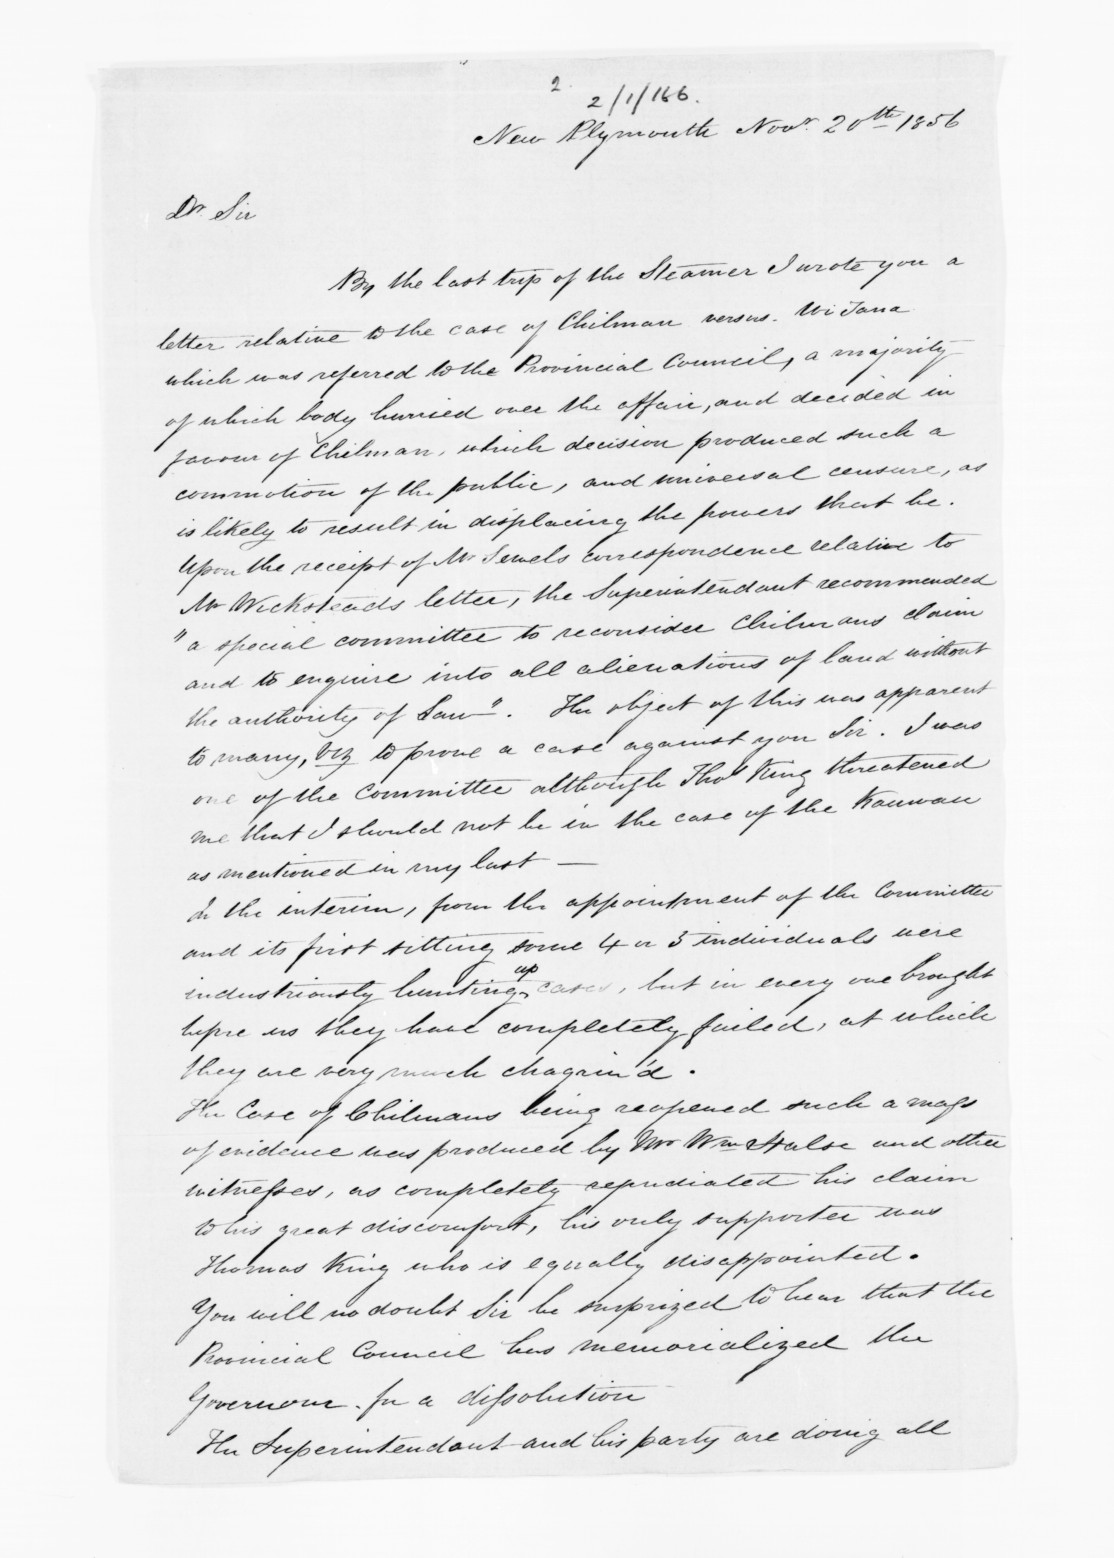 2
2/1/166.
New Plymouth Novr. 20th 1856
Dr. Sir
By the last trip of the Steamer I wrote you a
letter relative to the case of Chilman versus. Wi Tana
which was referred to the Provincial Council, a majority
of which body hurried over the affair, and decided in
favour of Chilman, which decision produced such a
commotion of the public, and universal censure, as
is likely to result in displacing the powers that be.
Upon the receipt of Mr Sewels correspondence relative to
Mr Wicksteads letter, the Superintendant recommended
"a special committee to reconsider Chilmans claim
and to enquire into all alienations of land without
the authority of Law". The object of this was apparent
to many, viz to prove a case against you Sir. I was
one of the Committee although Thos King threatened
me that I should not be in the case of the Kauwau
as mentioned in my last —
In the interim, from the appointment of the Committee
and its first sitting some 4 or 5 individuals were
industriously hunting up cases, but in every one brought
before us they have completely failed, at which
they are very much chagrin'd.
The Case of Chilmans being reopened such a mass
of evidence was produced by Mr Wm Halse and other
witnesses, as completely repudiated his claim
to his great discomfort, his only supporter was
Thomas King who is equally disappointed.
You will no doubt Sir be surprized to hear that the
Provincial Council has memorialized the
Governour. for a dissolution
The Superintendant and his party are doing all